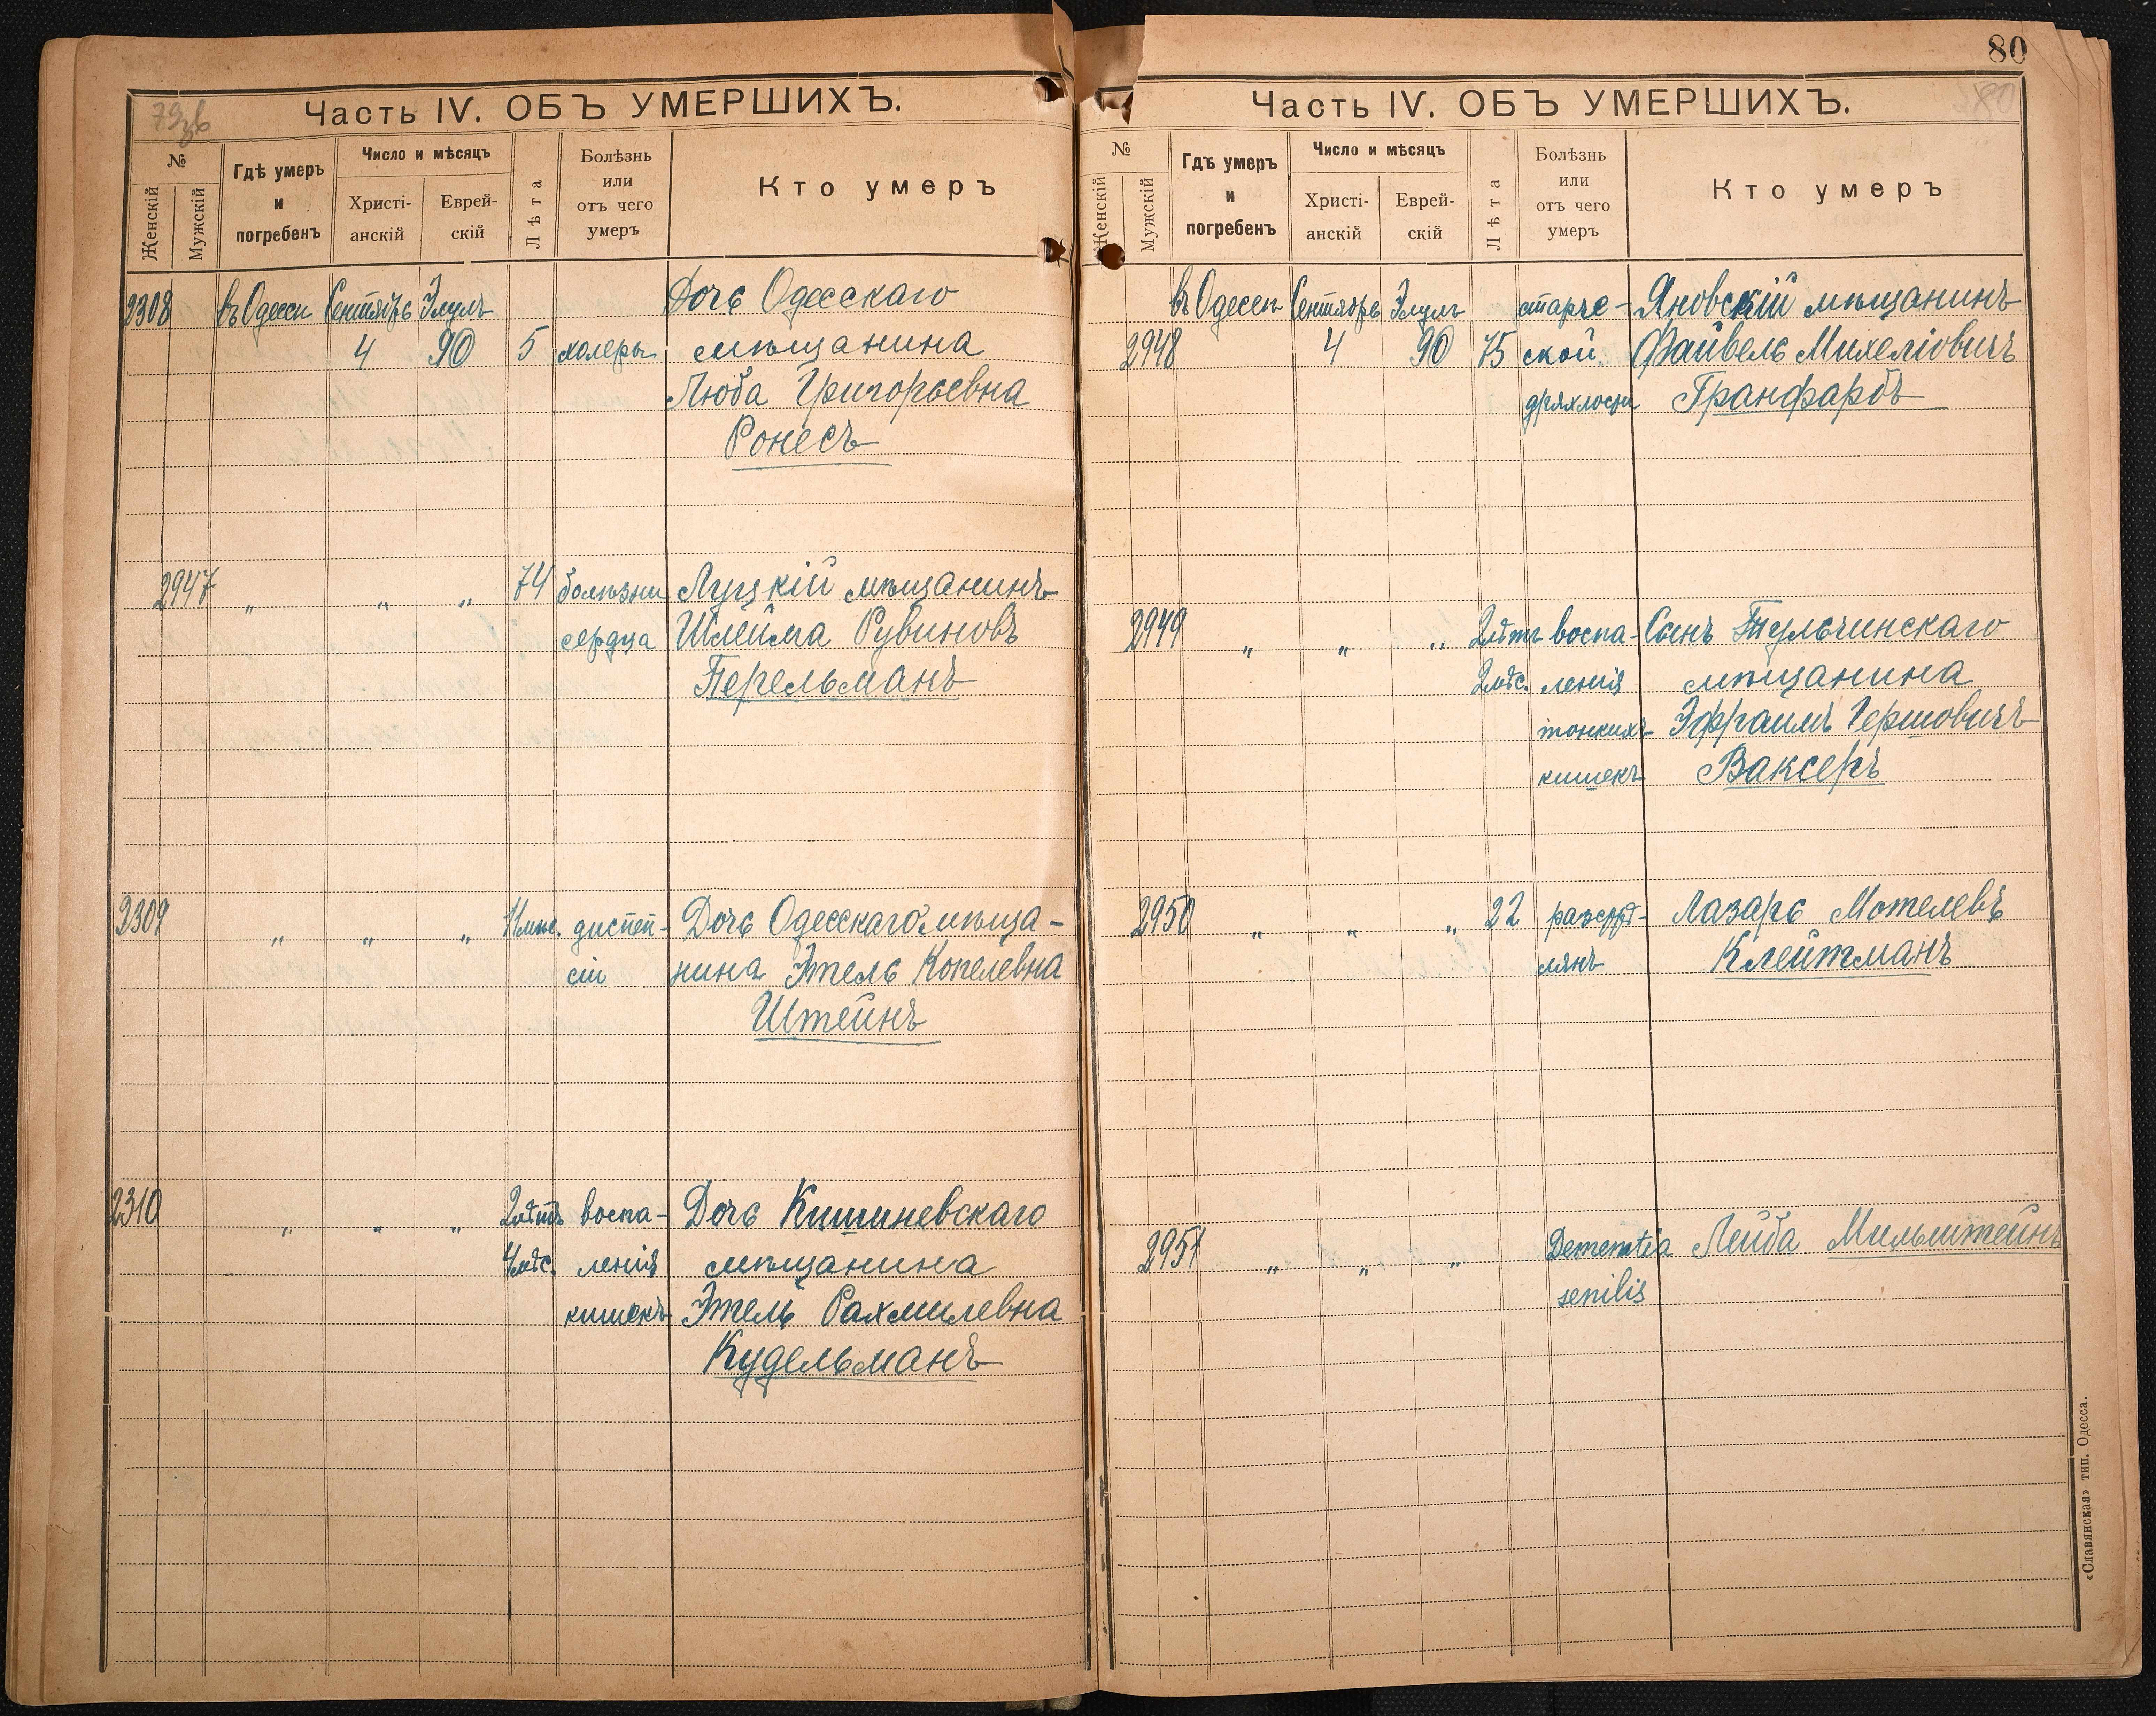 79об
Часть IV. ОБЪ УМЕРШИХЪ.
№
Женскій
Мужскій
Гдѣ умеръ
и
погребенъ
Число и мѣсяцъ
Христі-
анскій
Еврей-
скій
Лѣта
Болѣзнь
или
отъ чего
умеръ
Кто умеръ
2308 въ Одессѣ Сентябрь Элулъ Дочь Одесскаго
4 90 5 холеры мѣщанина
Люба Григорьевна
Ронесъ
2947 " " " 74 болѣзни Луцкій мѣщанинъ
сердца Шлейма Рувиновъ
Перельманъ
2309 " " " 11 мѣс. диспеп- Дочь Одесскаго мѣща-
сіи нина Этель Копелевна
Штейнъ
2310 " " " 2 лѣтъ воспа- Дочь Кишиневскаго
4 мѣс. ленія мѣщанина
кишекъ Этель Рахмилевна
Кудельманъ
80
80
Часть IV. ОБЪ УМЕРШИХЪ.
№
Женскій
Мужскій
Гдѣ умеръ
и
погребенъ
Число и мѣсяцъ
Христі-
анскій
Еврей-
скій
Лѣта
Болѣзнь
или
отъ чего
умеръ
Кто умеръ
въ Одессѣ Сентябрь Элулъ старче- Яновскій мѣщанинъ
2948 4 90 75 ской Файвель Михеліовичъ
дряхлости Гранфарбъ
2949 " " " 2 лѣтъ воспа- Сынъ Тульчинскаго
2 мѣс. ленія мѣщанина
тонкихъ Эфраимъ Гершовичъ
кишекъ Ваксеръ
2950 " " " 22 Лазарь Мотелевъ
Клейтманъ
2951 " " " Dementia Лейба Мильштейнъ
senilis
«Славянская» тип. Одесса.